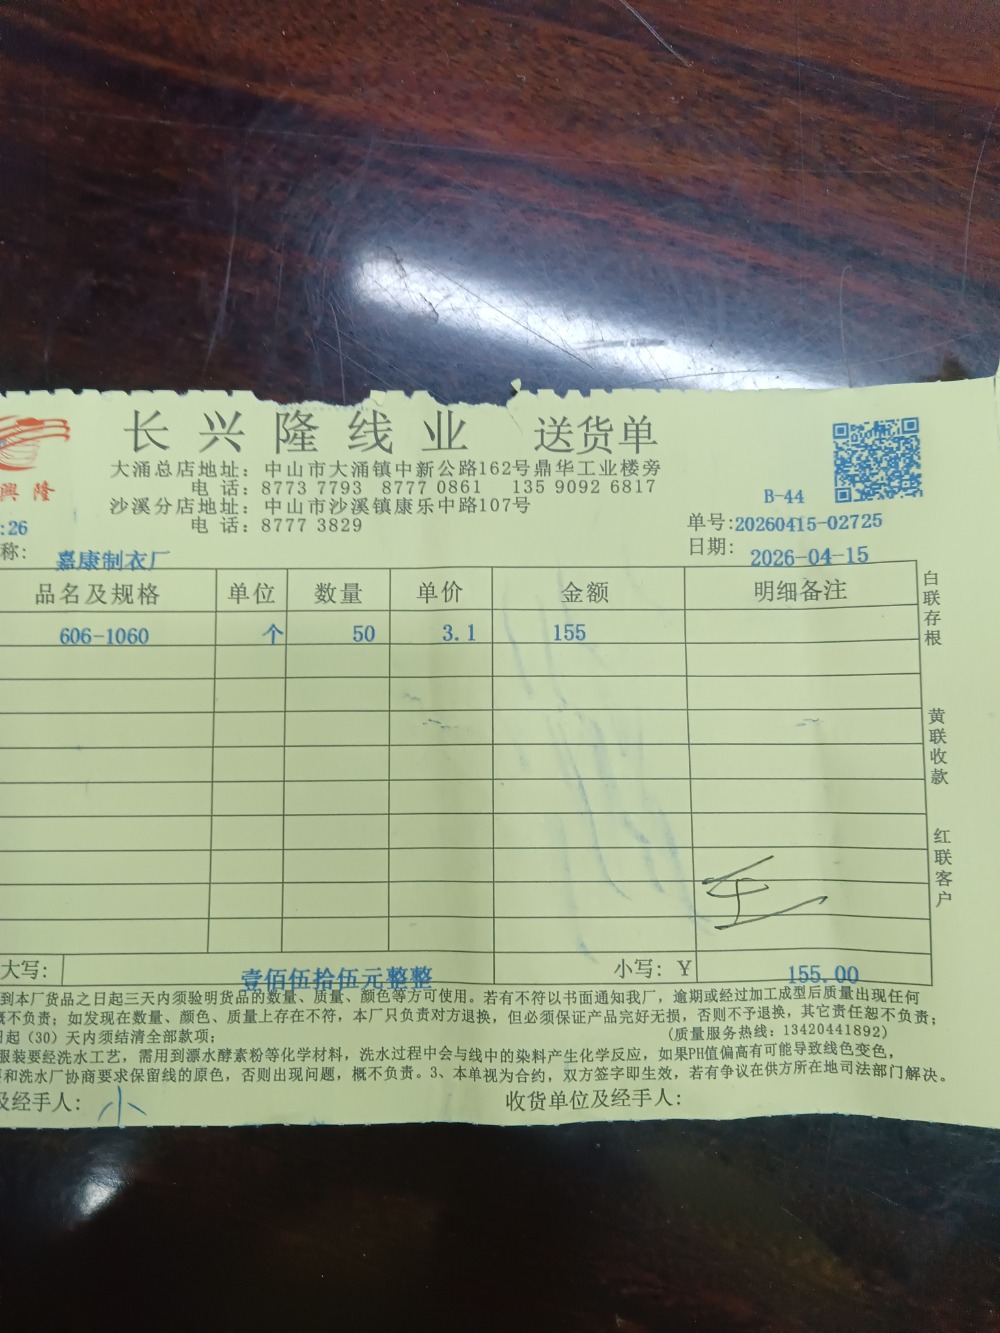 长兴隆线业 送货单
興隆
大涌总店地址：中山市大涌镇中新公路162号鼎华工业楼旁
电 话：8773 7793 8770 0861 135 9092 6817
沙溪分店地址：中山市沙溪镇康乐中路107号
电 话：8777 3829
B-44
:26
单号:20260415-02725
称: 嘉康制衣厂
日期: 2026-04-15
品名及规格 单位 数量 单价 金额 明细备注
606-1060 个 50 3.1 155
白联存根
黄联收款
红联客户
大写: 壹佰伍拾伍元整整 小写: Y 155.00
到本厂货品之日起三天内须验明货品的数量、质量、颜色等方可使用。若有不符以书面通知我厂，逾期或经过加工成型后质量出现任何
概不负责；如发现在数量、颜色、质量上存在不符，本厂只负责对方退换，但必须保证产品完好无损，否则不予退换，其它责任恕不负责；
日起（30）天内须结清全部款项； （质量服务热线：13420441892）
服装要经洗水工艺，需用到漂水酵素粉等化学材料，洗水过程中会与线中的染料产生化学反应，如果PH值偏高有可能导致线色变色，
和洗水厂协商要求保留线的原色，否则出现问题，概不负责。3、本单视为合约，双方签字即生效，若有争议在供方所在地司法部门解决。
及经手人: 小 收货单位及经手人: